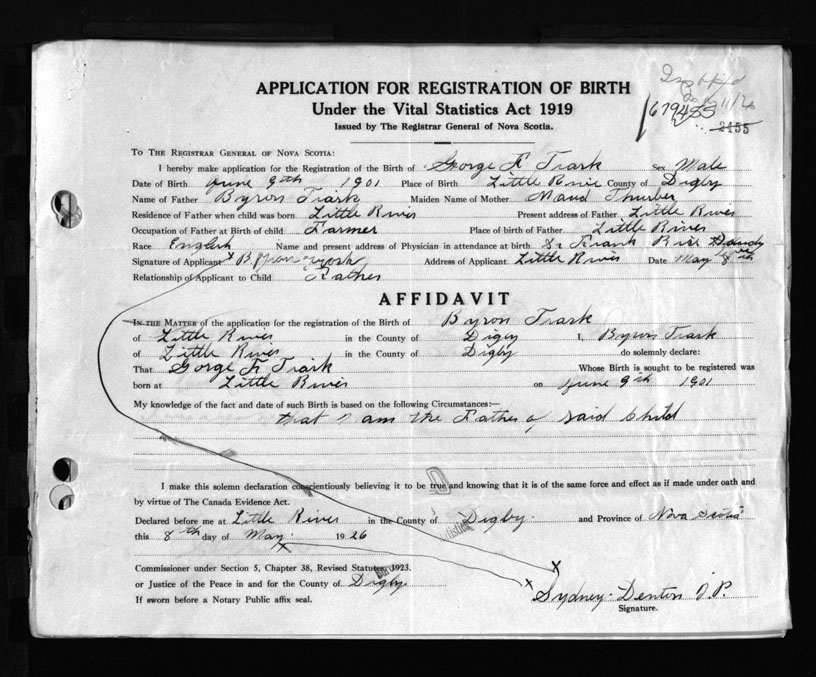 APPLICATION FOR REGISTRATION OF BIRTH
Under the Vital Statistics Act 1919
Issued by The Registrar General of Nova Scotia.
679455
2455
To The Registrar General of Nova Scotia:
I hereby make application for the Registration of the Birth of George F Trask Sex Male
Date of Birth June 9th 1901 Place of Birth Little River County of Digby
Name of Father Byron Trask Maiden Name of Mother Maud Thurber
Residence of Father when child was born Little River Present address of Father Little River
Occupation of Father at Birth of child Farmer Place of birth of Father Little River
Race English Name and present address of Physician in attendance at birth Dr Frank Rice Sandy Cove
Signature of Applicant x Byron Trask Address of Applicant Little River Date May 8th
Relationship of Applicant to Child Father
AFFIDAVIT
In the Matter of the application for the registration of the Birth of Byron Trask
of Little River in the County of Digby I, Byron Trask
of Little River in the County of Digby do solemnly declare:
That Gorge F Trask Whose Birth is sought to be registered was
born at Little River on June 9th 1901
My knowledge of the fact and date of such Birth is based on the following Circumstances:—
that I am the Father of said child
I make this solemn declaration conscientiously believing it to be true and knowing that it is of the same force and effect as if made under oath and
by virtue of The Canada Evidence Act.
Declared before me at Little River in the County of Digby and Province of Nova Scotia
this 8th day of May 1926
Commissioner under Section 5, Chapter 38, Revised Statutes, 1923.
or Justice of the Peace in and for the County of Digby
x
x Sydney Denton J.P.
If sworn before a Notary Public affix seal.
Signature.